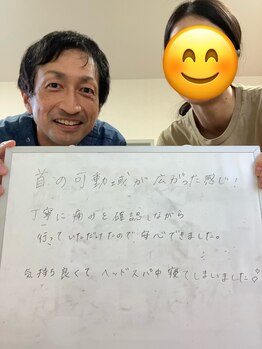 首の可動域が広がった感じ!
丁寧に痛みを確認しながら
行っていただけたので安心できました。
気持ち良くてヘッドスパ中寝てしまいました